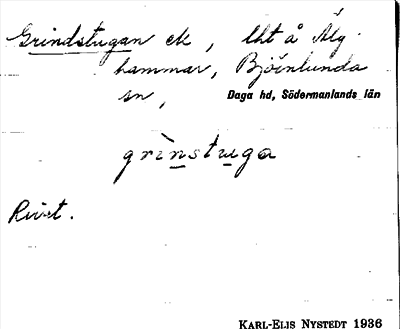 Grindstugan ek, lht å Älg-
hammar, Björnlunda
sn, Daga hd, Södermanlands län
grìnstuga
Rivet.
KARL-ELIS NYSTEDT 1936